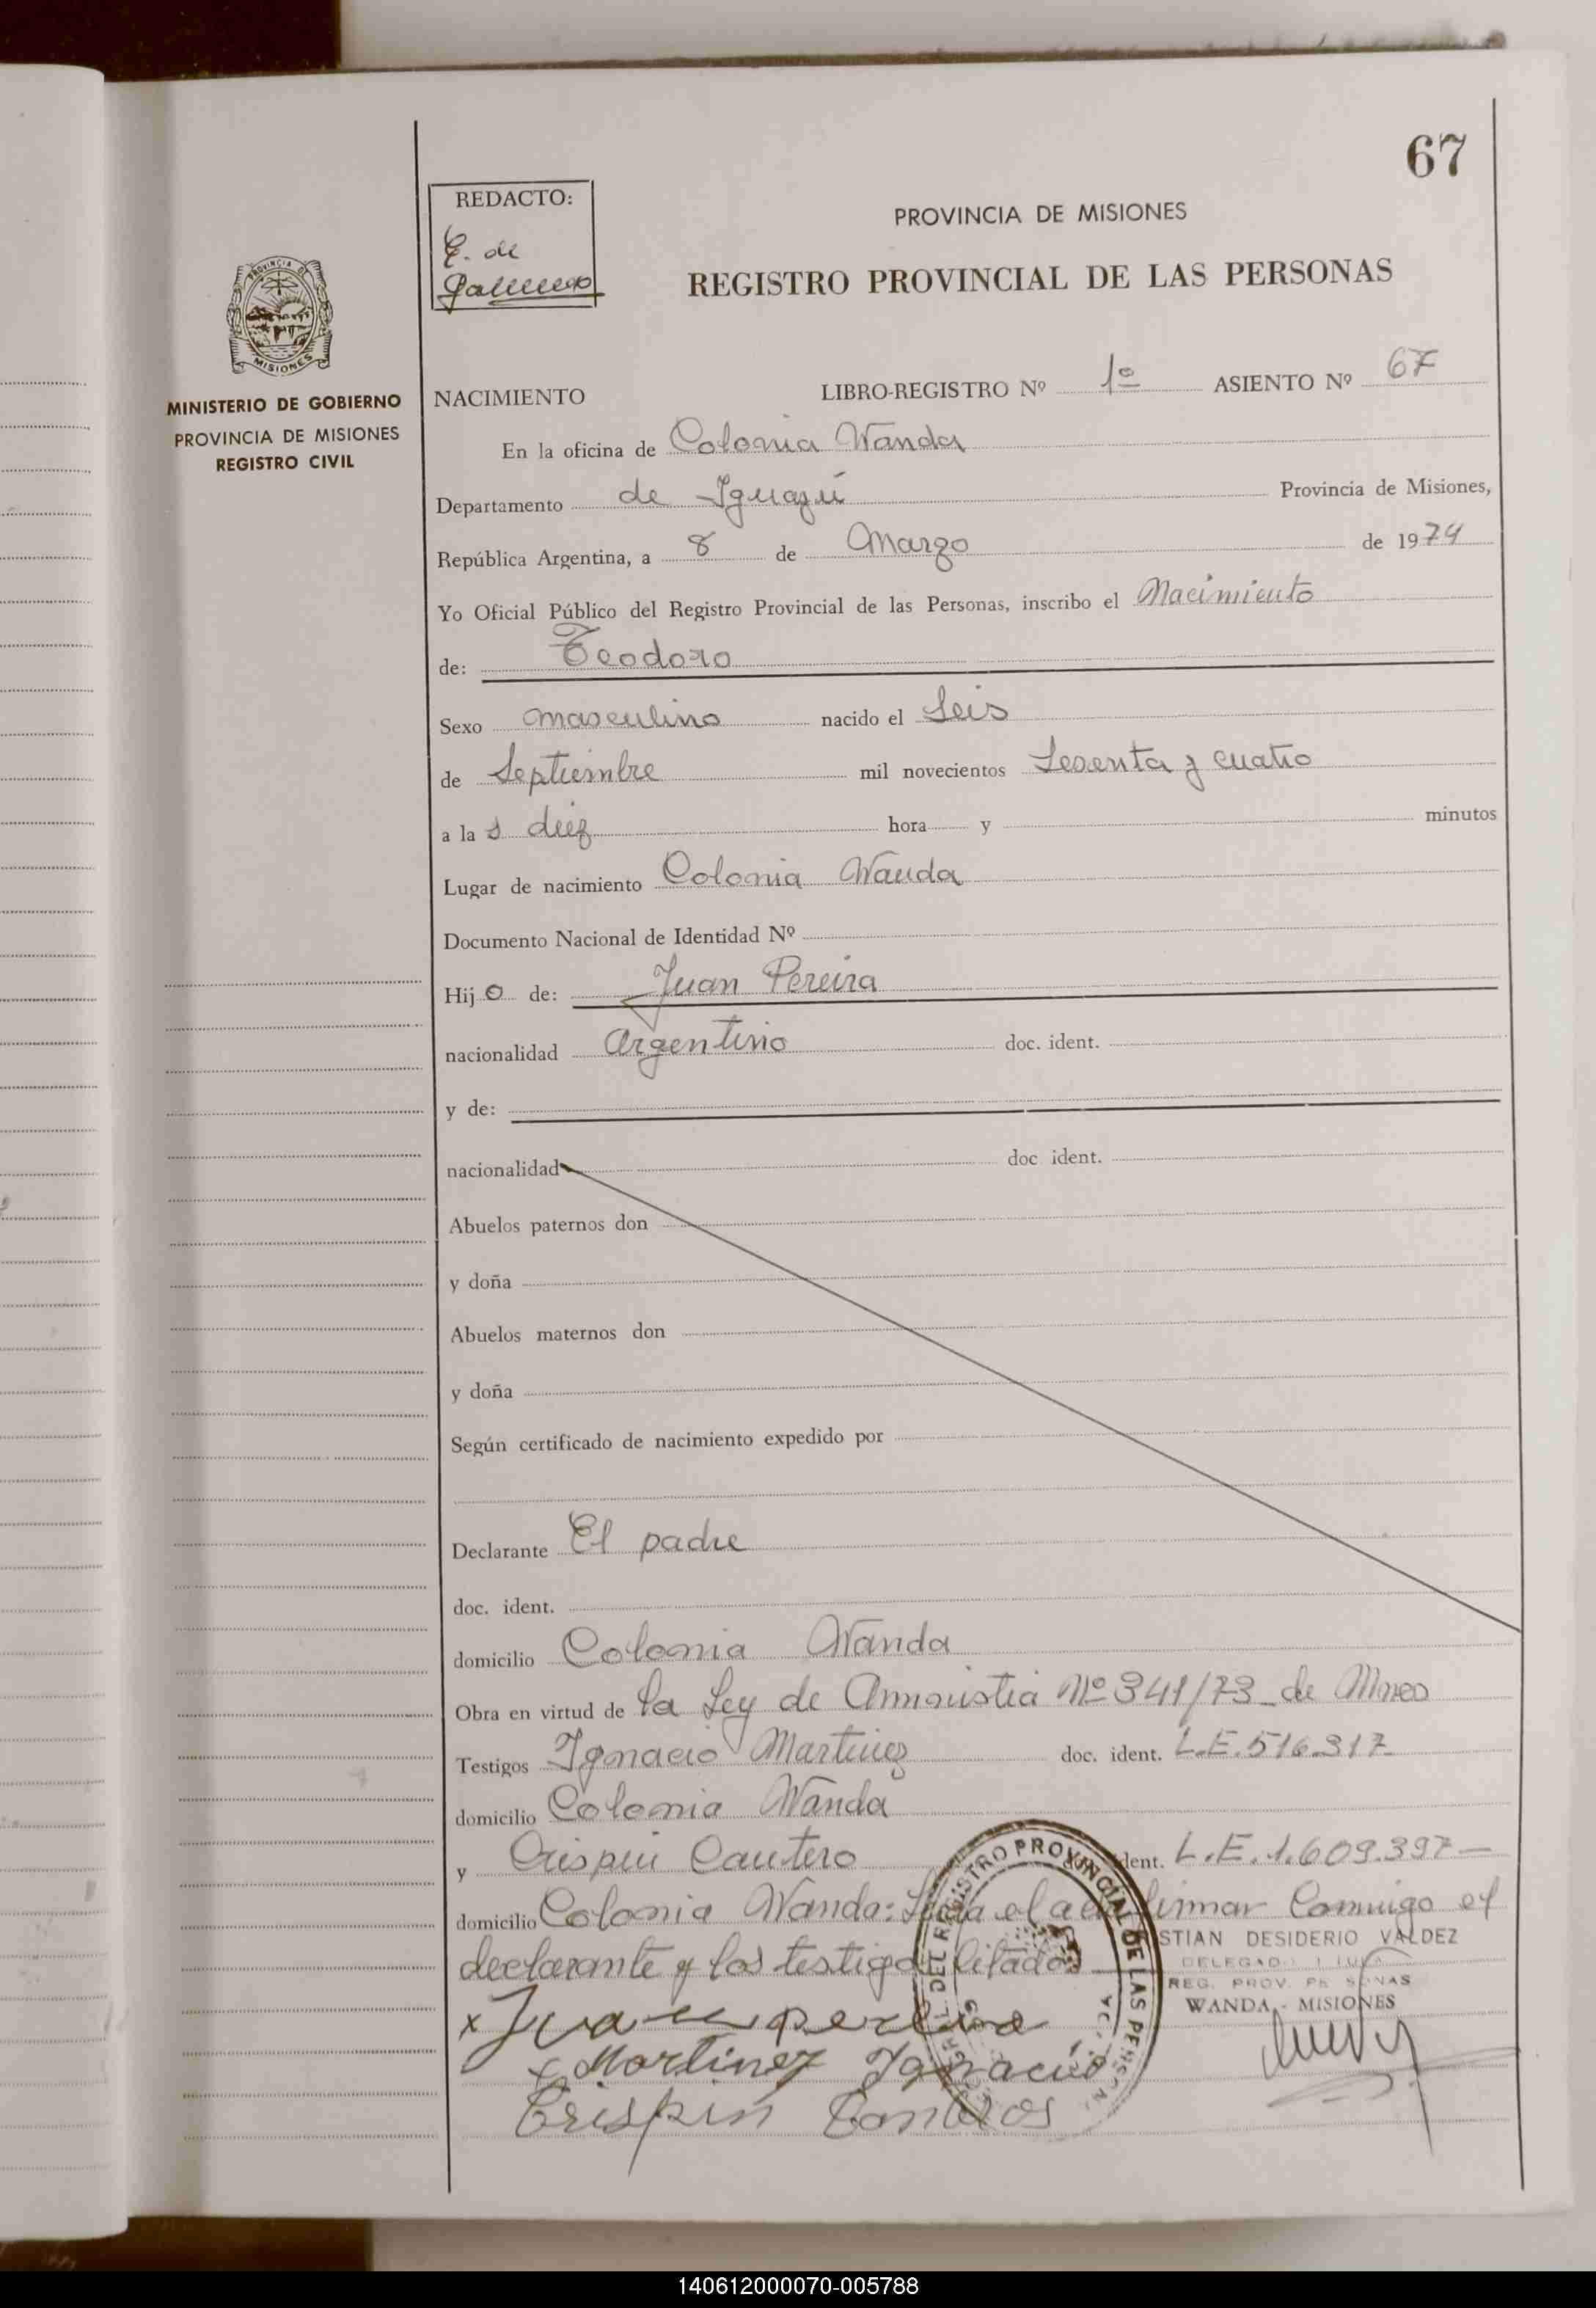 67
REDACTO:
E. de
PROVINCIA DE MISIONES
REGISTRO PROVINCIAL DE LAS PERSONAS
PROVINCIA DE
MISIONES
MINISTERIO DE GOBIERNO
PROVINCIA DE MISIONES
REGISTRO CIVIL
NACIMIENTO LIBRO-REGISTRO Nº 1º ASIENTO Nº 67
En la oficina de Colonia Wanda
Departamento de Iguazú Provincia de Misiones,
República Argentina, a 8 de Marzo de 1974
Yo Oficial Público del Registro Provincial de las Personas, inscribo el Nacimiento
de: Teodoro
Sexo masculino nacido el Seis
de Septiembre mil novecientos Sesenta y cuatro
a la s diez hora y minutos
Lugar de nacimiento Colonia Wanda
Documento Nacional de Identidad Nº
Hij o de: Juan Pereira
nacionalidad Argentino doc. ident.
y de:
nacionalidad doc ident.
Abuelos paternos don
y doña
Abuelos maternos don
y doña
Según certificado de nacimiento expedido por
Declarante El padre
doc. ident.
domicilio Colonia Wanda
Obra en virtud de la Ley de Amnistia Nº 341/73 de Mnes
Testigos Ignacio Martinez doc. ident. L.E. 516.317
domicilio Colonia Wanda
y Crispin Cantero ident. L.E. 1.609.397
domicilio Colonia Wanda: el acta firman Conmigo el
declarante y los testigos Citados
STIAN DESIDERIO VALDEZ
REG. PROV. PERSONAS
WANDA - MISIONES
DEL REGISTRO PROVINCIAL DE LAS PERSONAS
x Juan pereira
x Martinez Ignacio
Crispin Canteros
140612000070-005788